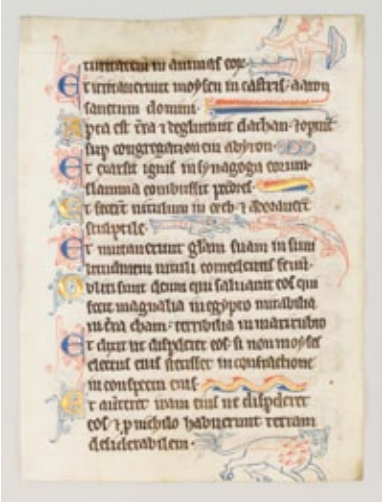 turitatem in animas eor
Et irritaverunt moysen in castris· aaron
sanctum domini·
Apta est t̄ra ⁊ deglutivit dathan· ⁊ opuit
sup congregationem abyron·
Et exarsit ignis in synagoga eorum·
flamma combussit pctores·
Et fecer̄t vitulum in oreb ⁊ adoraver̄t
sculptile·
Et mutaverunt gl̄am suam in simi
litudinem vituli comedentis fenū·
Obliti sunt deum qui salvavit eos qui
fecit magnalia in egypto mirabilia
in t̄ra cham· terribilia in mari rubro
Et dixit ut disp̄deret eos· si non moyses
electus eius stetisset in confractione
in conspectu eius·
Et av̄teret iram eius ne disp̄deret
eos ⁊ p nichilo habuerunt terram
desiderabilem·